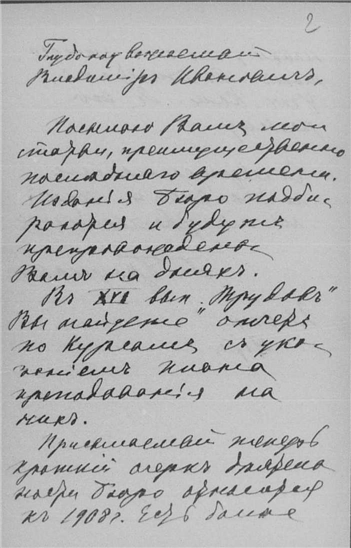 2
Глубокоуважаемый
Владимiръ Ивановичъ,
Посылаю Вамъ мои
статьи, преимущественно
последняго времени.
Изданiя Бюро подби-
раются и будутъ
препровождены
Вамъ на дняхъ.
Въ XVI вып. "Трудовъ"
Вы найдете " отчетъ
по Курсамъ съ ука-
занiемъ плана
преподаванiя на
нихъ.
Присылаемый теперь
краткiй очеркъ деятель-
ности Бюро относится
къ 1908 г. Есть более